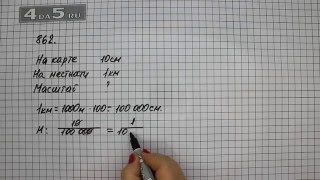 4DA5.RU
862.
На карте 10см
На местности 1км
Масштаб ?
1км = 1000м · 100 = 100 000 см.
М: 10/100 000 = 1/10